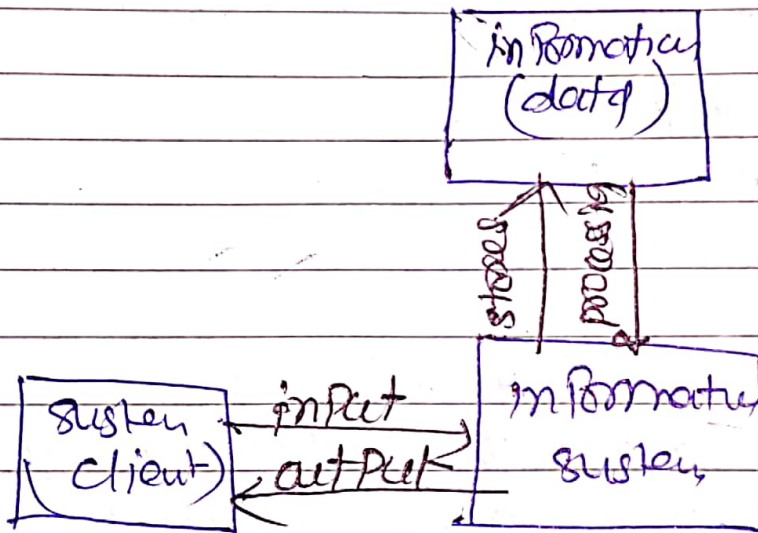 information
(data)
stores
processing
system
(client)
input
output
information
system